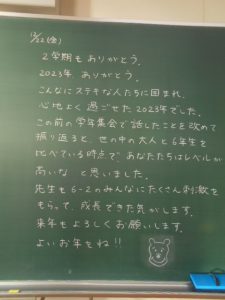 12/22(金)
2学期もありがとう。
2023年、ありがとう。
こんなにステキな人たちに囲まれ、
心地よく過ごせた2023年でした。
この前の学年集会で話したことを改めて
振り返ると、世の中の大人と6年生を
比べている時点であなたたちはレベルが
高いな と思いました。
先生も6-2のみんなにたくさん刺激を
もらって、成長できた気がします。
来年もよろしくお願いします。
よいお年をね!!